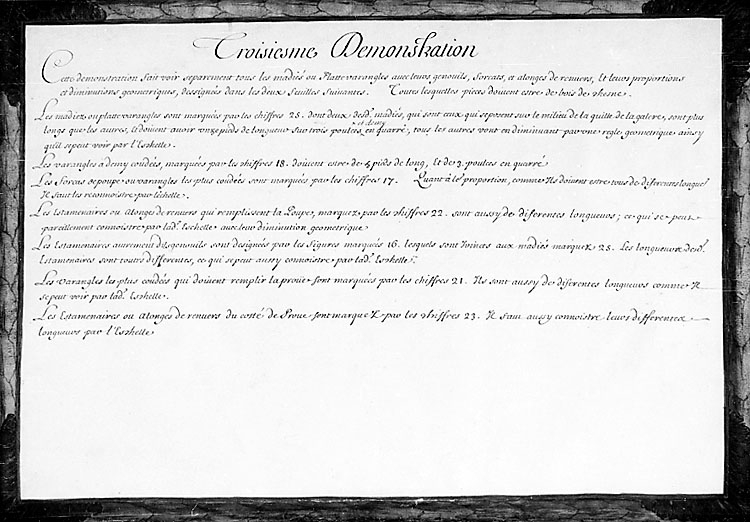 Troisiesme Demonstration
Cette demonstration fait voir separement tous les madiés ou Platte varangles avec leurs genouils, forcats, et alonges de renvers, Et leurs proportions
et diminutions geometriques, dessignées dans les deux feuilles suivantes. Toutes lesquelles pieces doivent estre de bois de chesne.
Les madiez ou platte varangles sont marquées par les chiffres 25. dont deux desd. madiés, qui sont ceux qui se posent sur le milieu de la quille de la galere, sont plus
et demy
longs que les autres, Et doivent avoir unze pieds de longueur sur trois pouces en quarré, tous les autres vont en diminuant par une regle geometrique ainsy
qu'il se peut voir par l'Eschelle.
Les varangles a demy coudées, marquées par les chiffres 18. doivent estre de 4 pieds de long, Et de 3. pouces en quarré
Les forcas de poupe ou varangles les plus coudés sont marquées par les chiffres 17. Quant à la proportion, comme Ils doivent estre tous de diferentes longueurs
Il faut les reconnoistre par l'échelle.
Les Estamenaires ou alonges de renvers qui remplissent la Poupe, marquez par les chiffres 22. sont aussy de diferentes longueurs; ce qui se peut
pareillement connoistre par lad. Eschelle avec leur diminution geometrique.
Les Estamenaires autrement dits genouils sont designées par les figures marqués 16. lesquels sont Joints aux madiés marquez 25. Les longueurs desd.
Estamenaires sont toutes differentes, ce qui se peut aussy connoistre par lad. Eschelle.
Les varangles les plus coudées qui doivent remplir la proue sont marquées par les chiffres 21. Ils sont aussy de diferentes longueurs comme Il
se peut voir par lad. Eschelle.
Les Estamenaires ou alonges de renvers du costé de Proue sont marquez par les chiffres 23. Il faut aussy connoistre leurs differentes
longueurs par l'Eschelle